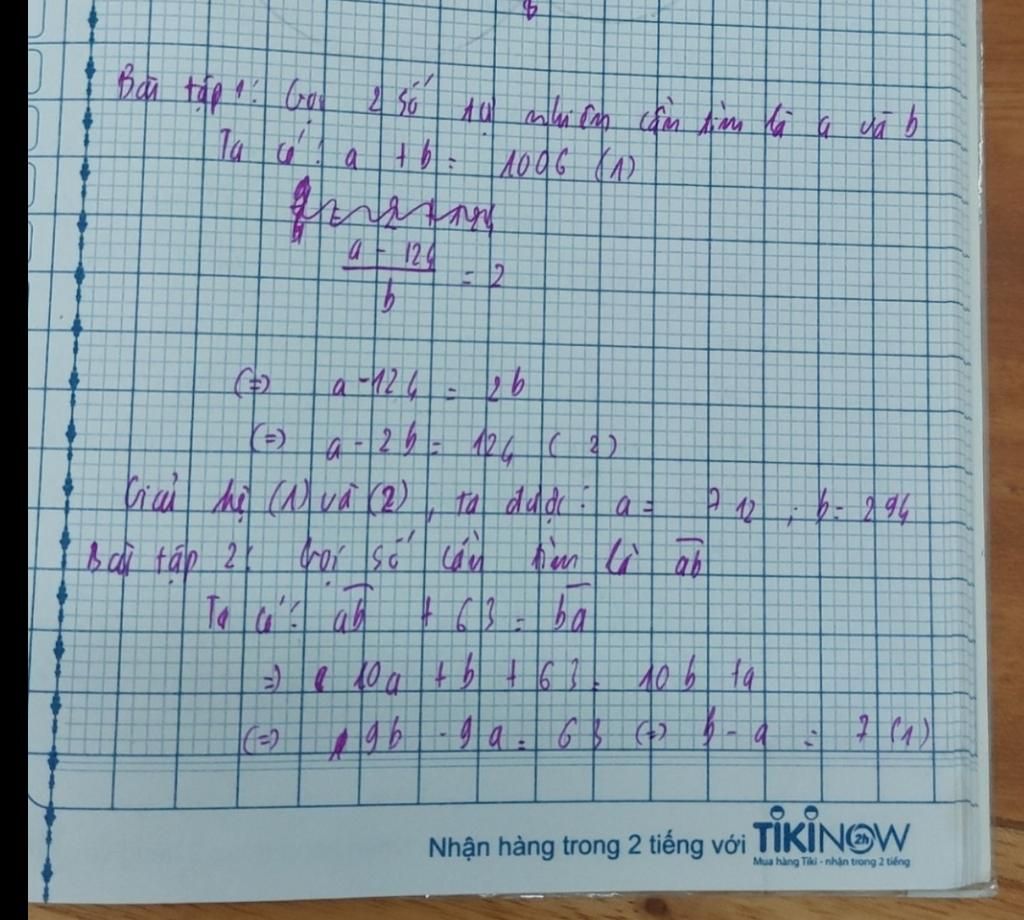 Bài tập 1: Gọi 2 số tự nhiên cần tìm là a và b
Ta có: a + b = 1006 (1)
a - 124
= 2
b
(=) a - 124 = 2b
(=) a - 2b = 124 (2)
Giải hệ (1) và (2), ta được: a = 712 ; b = 294
Bài tập 2: Gọi số cần tìm là ab
Ta có: ab + 63 = ba
=) 10a + b + 63 = 10b + a
(=) 9b - 9a = 63 (=) b - a = 7 (1)
Nhận hàng trong 2 tiếng với TIKINOW 2h
Mua hàng Tiki - nhận trong 2 tiếng